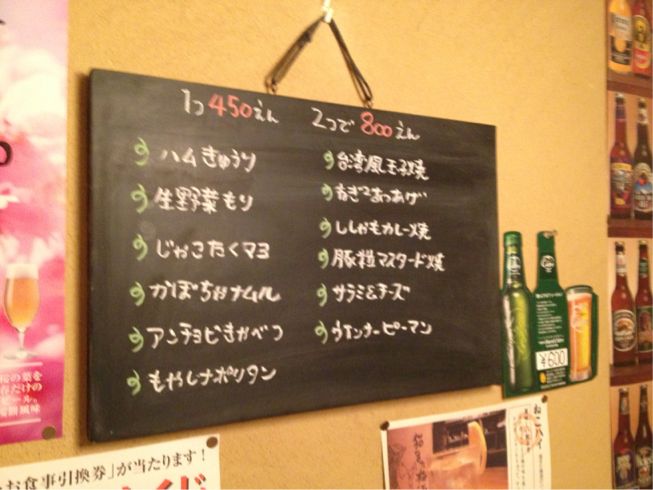 1つ 450えん 2つで 800えん
ハムきゅうり
生野菜もり
じゃこたくマヨ
かぼちゃナムル
アンチョビきゃべつ
もやしナポリタン
台湾風玉子焼
ねぎあつあげ
ししゃもカレー焼
豚粒マスタード焼
サラミ&チーズ
ウインナーピーマン
¥600
お食事引換券」が当たります!